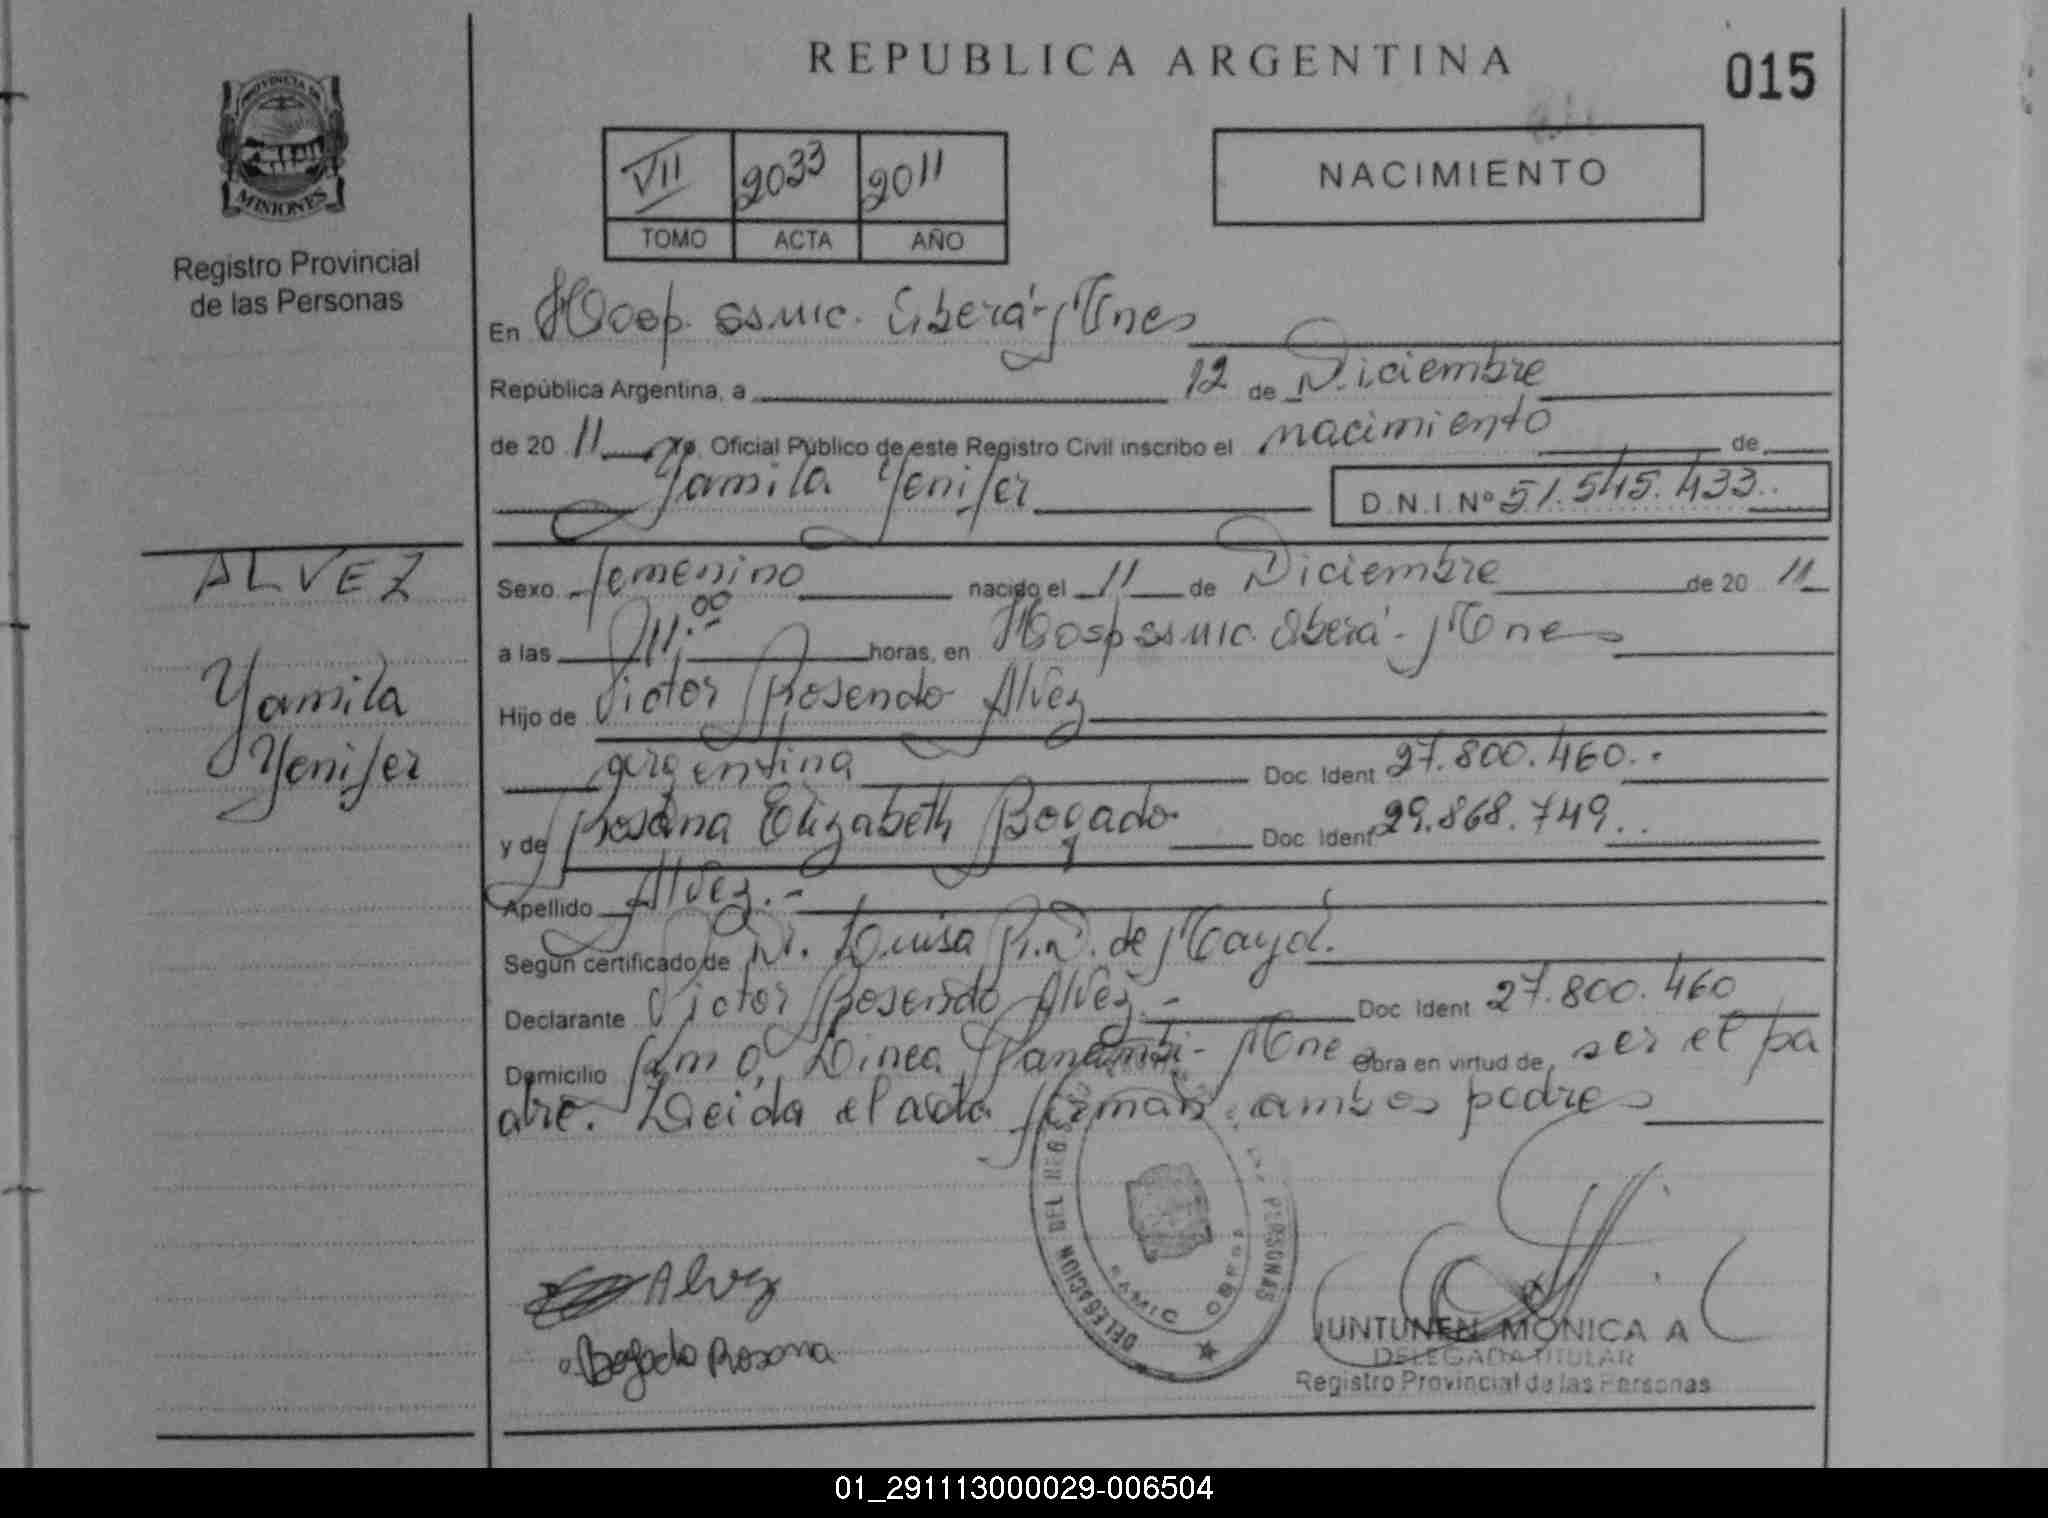 REPUBLICA ARGENTINA
015
PROVINCIA DE
MISIONES
Registro Provincial
de las Personas
VII 2033 2011
TOMO ACTA AÑO
NACIMIENTO
En Hosp. ssmic. Oberá-Mnes
República Argentina, a 12 de Diciembre
de 20 11 yo, Oficial Público de este Registro Civil inscribo el nacimiento de
Yamila Yenifer D.N.I. Nº 51.545.433..
ALVEZ
Yamila
Yenifer
Sexo femenino nacido el 11 de Diciembre de 20 11
a las 11:00 horas, en Hosp ssmic. Oberá-Mnes
Hijo de Victor Rosendo Alvez
argentina Doc. Ident 27.800.460..
y de Rosana Elizabeth Bogado Doc. Ident 29.868.749..
Apellido Alvez.-
Según certificado de D. Luisa R.D. de
Declarante Victor Rosendo Alvez.- Doc Ident 27.800.460
Domicilio km 0, Linea Panambi-Mne Obra en virtud de ser el pa
dre. Leida el acta firman ambos padres
Alvez
Bogado Rosana
DELEGACION DEL PERSONAS
SAMIC OBERA
JUNTUNEN MONICA A
DELEGADA TITULAR
Registro Provincial de las Personas
01_291113000029-006504